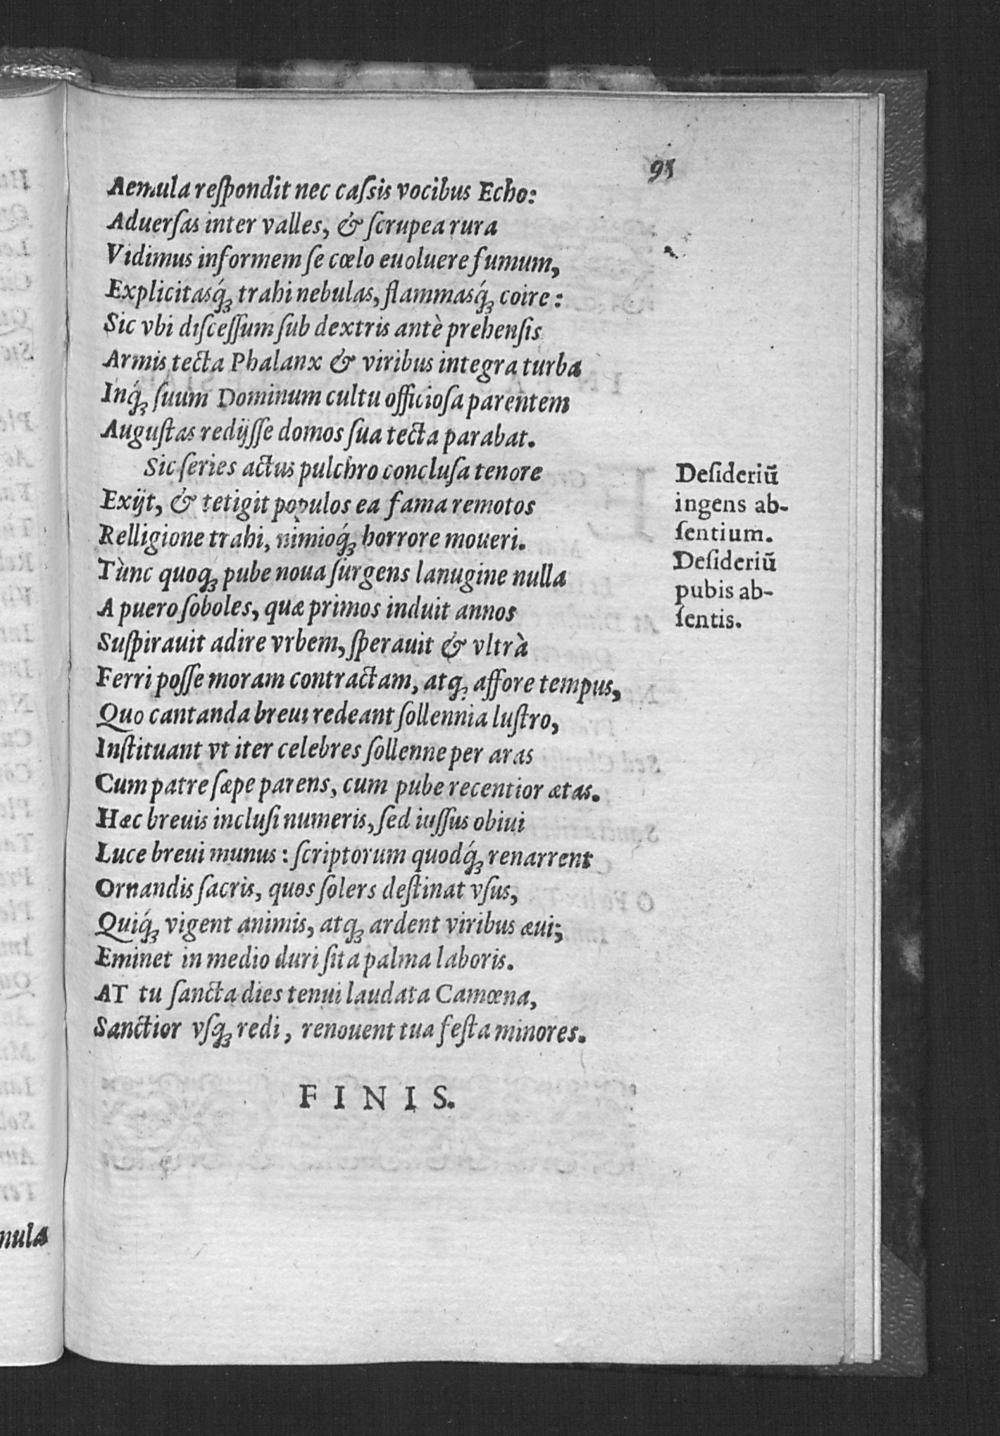 95
Aemula respondit nec cassis vocibus Echo:
Aduersas inter valles, & scrupea rura
Vidimus informem se cœlo euoluere fumum,
Explicitasq́ꝫ trahi nebulas, flammasq́ꝫ coire:
Sic vbi discessum sub dextris antè prehensis
Armis tecta Phalanx & viribus integra turba
Inq́ꝫ suum Dominum cultu officiosa parentem
Augustas redijsse domos sua tecta parabat.
Sic series actus pulchro conclusa tenore
Exijt, & tetigit populos ea fama remotos
Relligione trahi, nimioq́ꝫ horrore moueri.
Tùnc quoqꝫ pube noua surgens lanugine nulla
A puero soboles, quæ primos induit annos
Suspirauit adire vrbem, sperauit & vltrà
Ferri posse moram contractam, atqꝫ affore tempus,
Quo cantanda breui redeant sollennia lustro,
Instituant vt iter celebres sollenne per aras
Cum patre sæpe parens, cum pube recentior ætas.
Hæc breuis inclusi numeris, sed iussus obiui
Luce breui munus: scriptorum quodq́ꝫ renarrent
Ornandis sacris, quos solers destinat vsus,
Quiq́ꝫ vigent animis, atqꝫ ardent viribus æui;
Eminet in medio duri sita palma laboris.
AT tu sancta dies tenui laudata Camœna,
Sanctior vsqꝫ redi, renouent tua festa minores.
FINIS.
Desideriū
ingens ab-
sentium.
Desideriū
pubis ab-
sentis.
nula